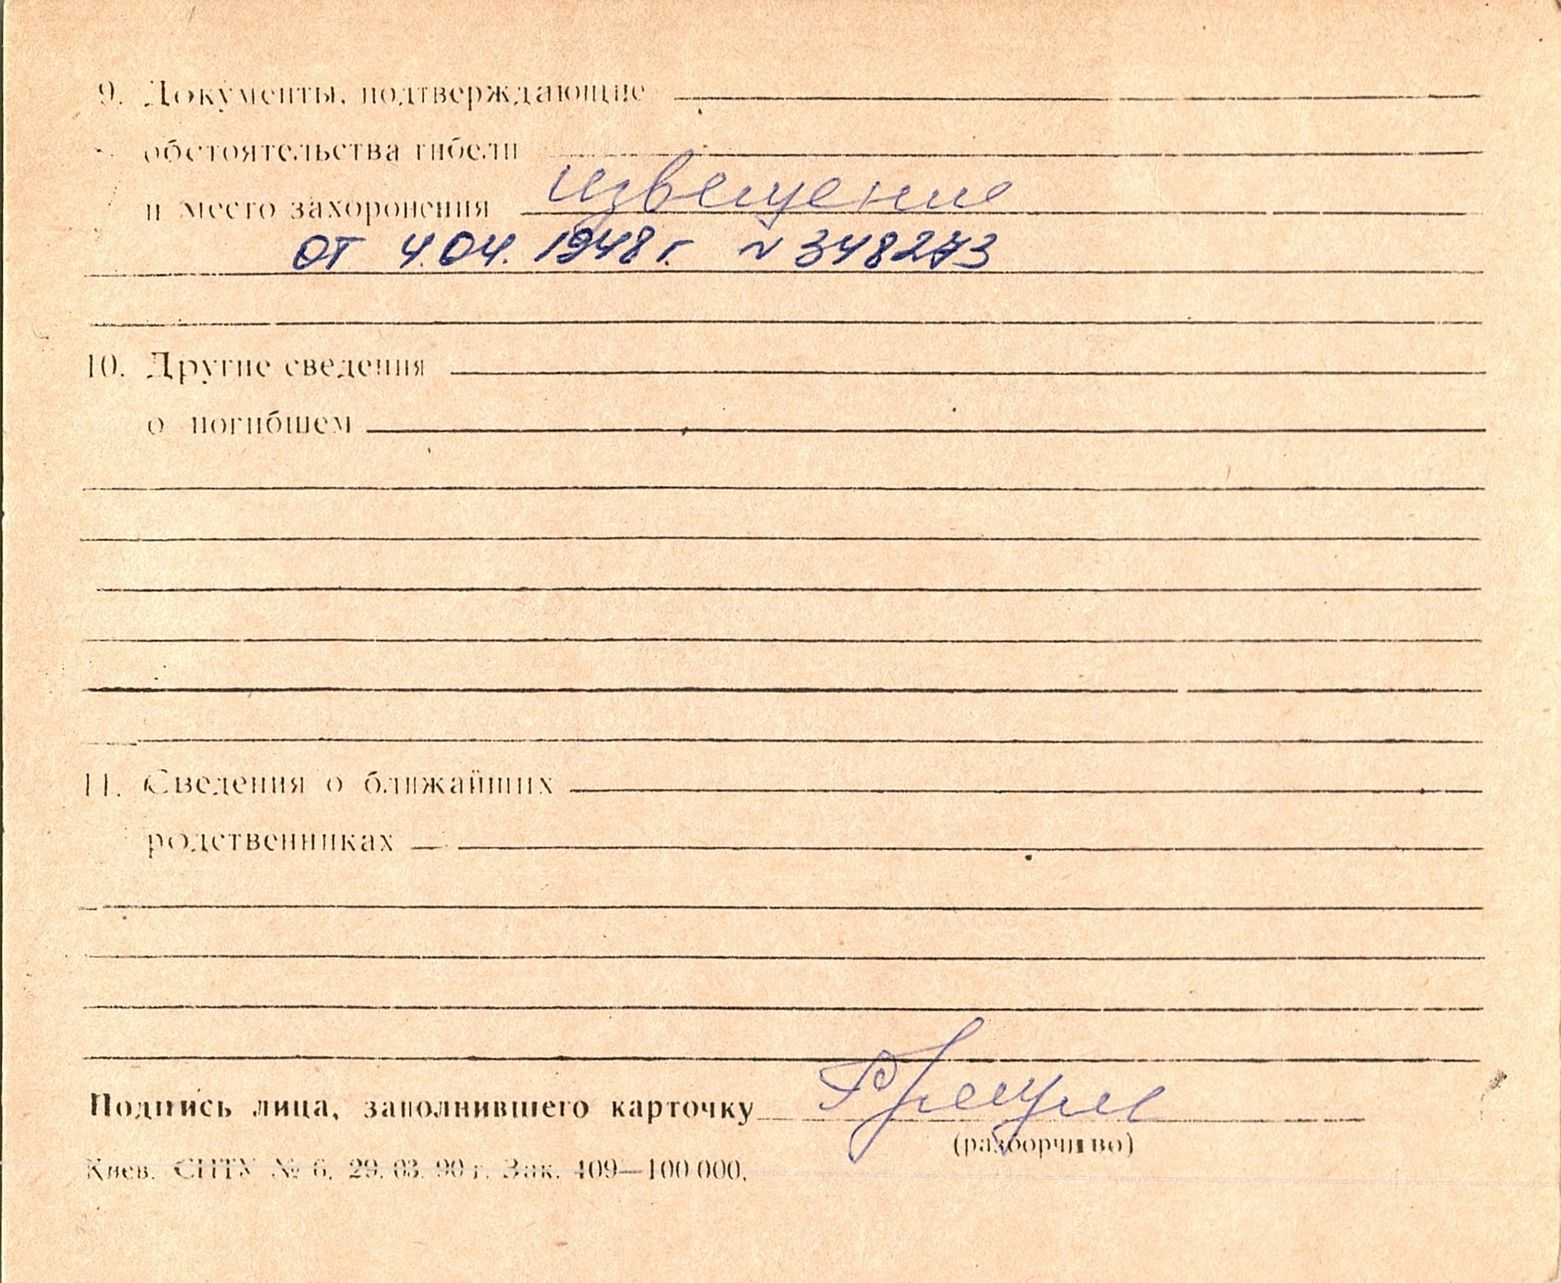 9. Документы, подтверждающие
обстоятельства гибели
и место захоронения извещение
от 4.04. 1948 г. № 348273
10. Другие сведения
о погибшем
11. Сведения о ближайших
родственниках
Подпись лица, заполнившего карточку
(разборчиво)
Киев. СПТУ № 6. 29. 03. 90 г. Зак. 409—100 000.